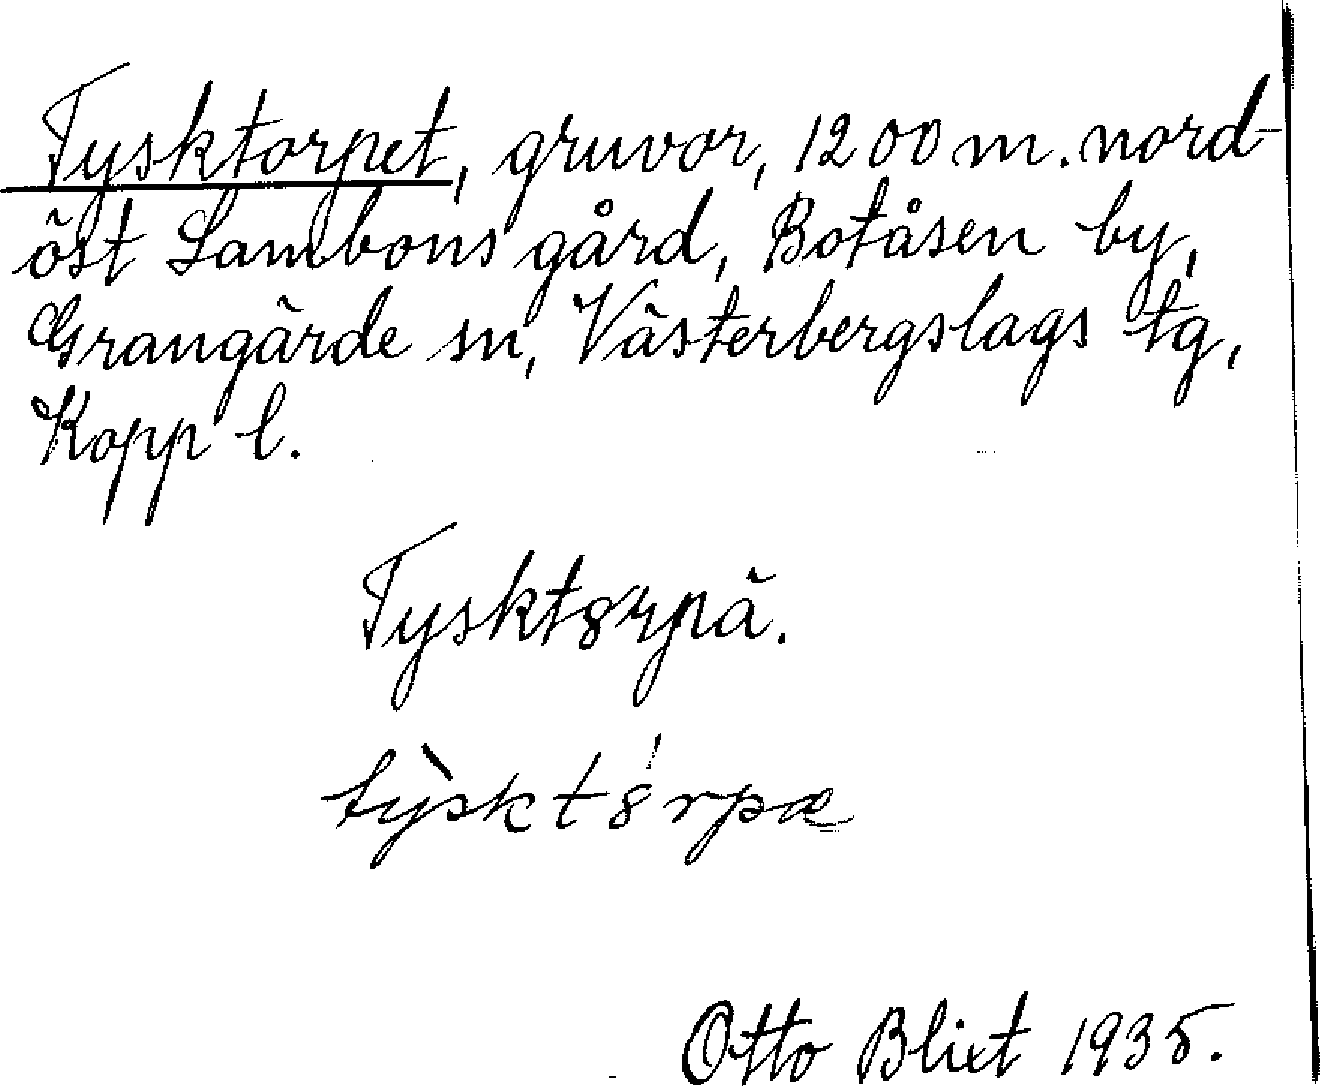 Tysktorpet, gruvor, 1200 m. nord-
öst Lambons gård, Botåsen by,
Grangärde sn, Västerbergslags tg,
Kopp l.
Tysktȣrpä.
tỳsktȣ́rpæ
Otto Blixt 1935.